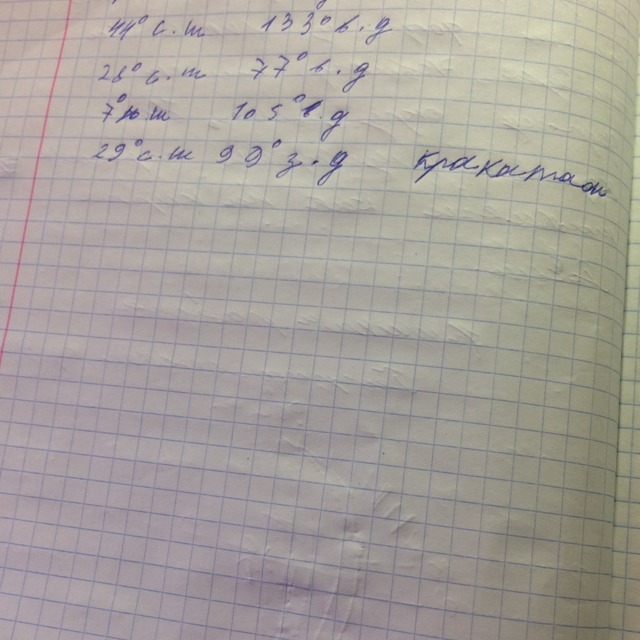 44° с.ш 133° в.д
28° с.ш 77° в.д
7° ю.ш 105° в.д
29° с.ш 90° з.д Кракатаои